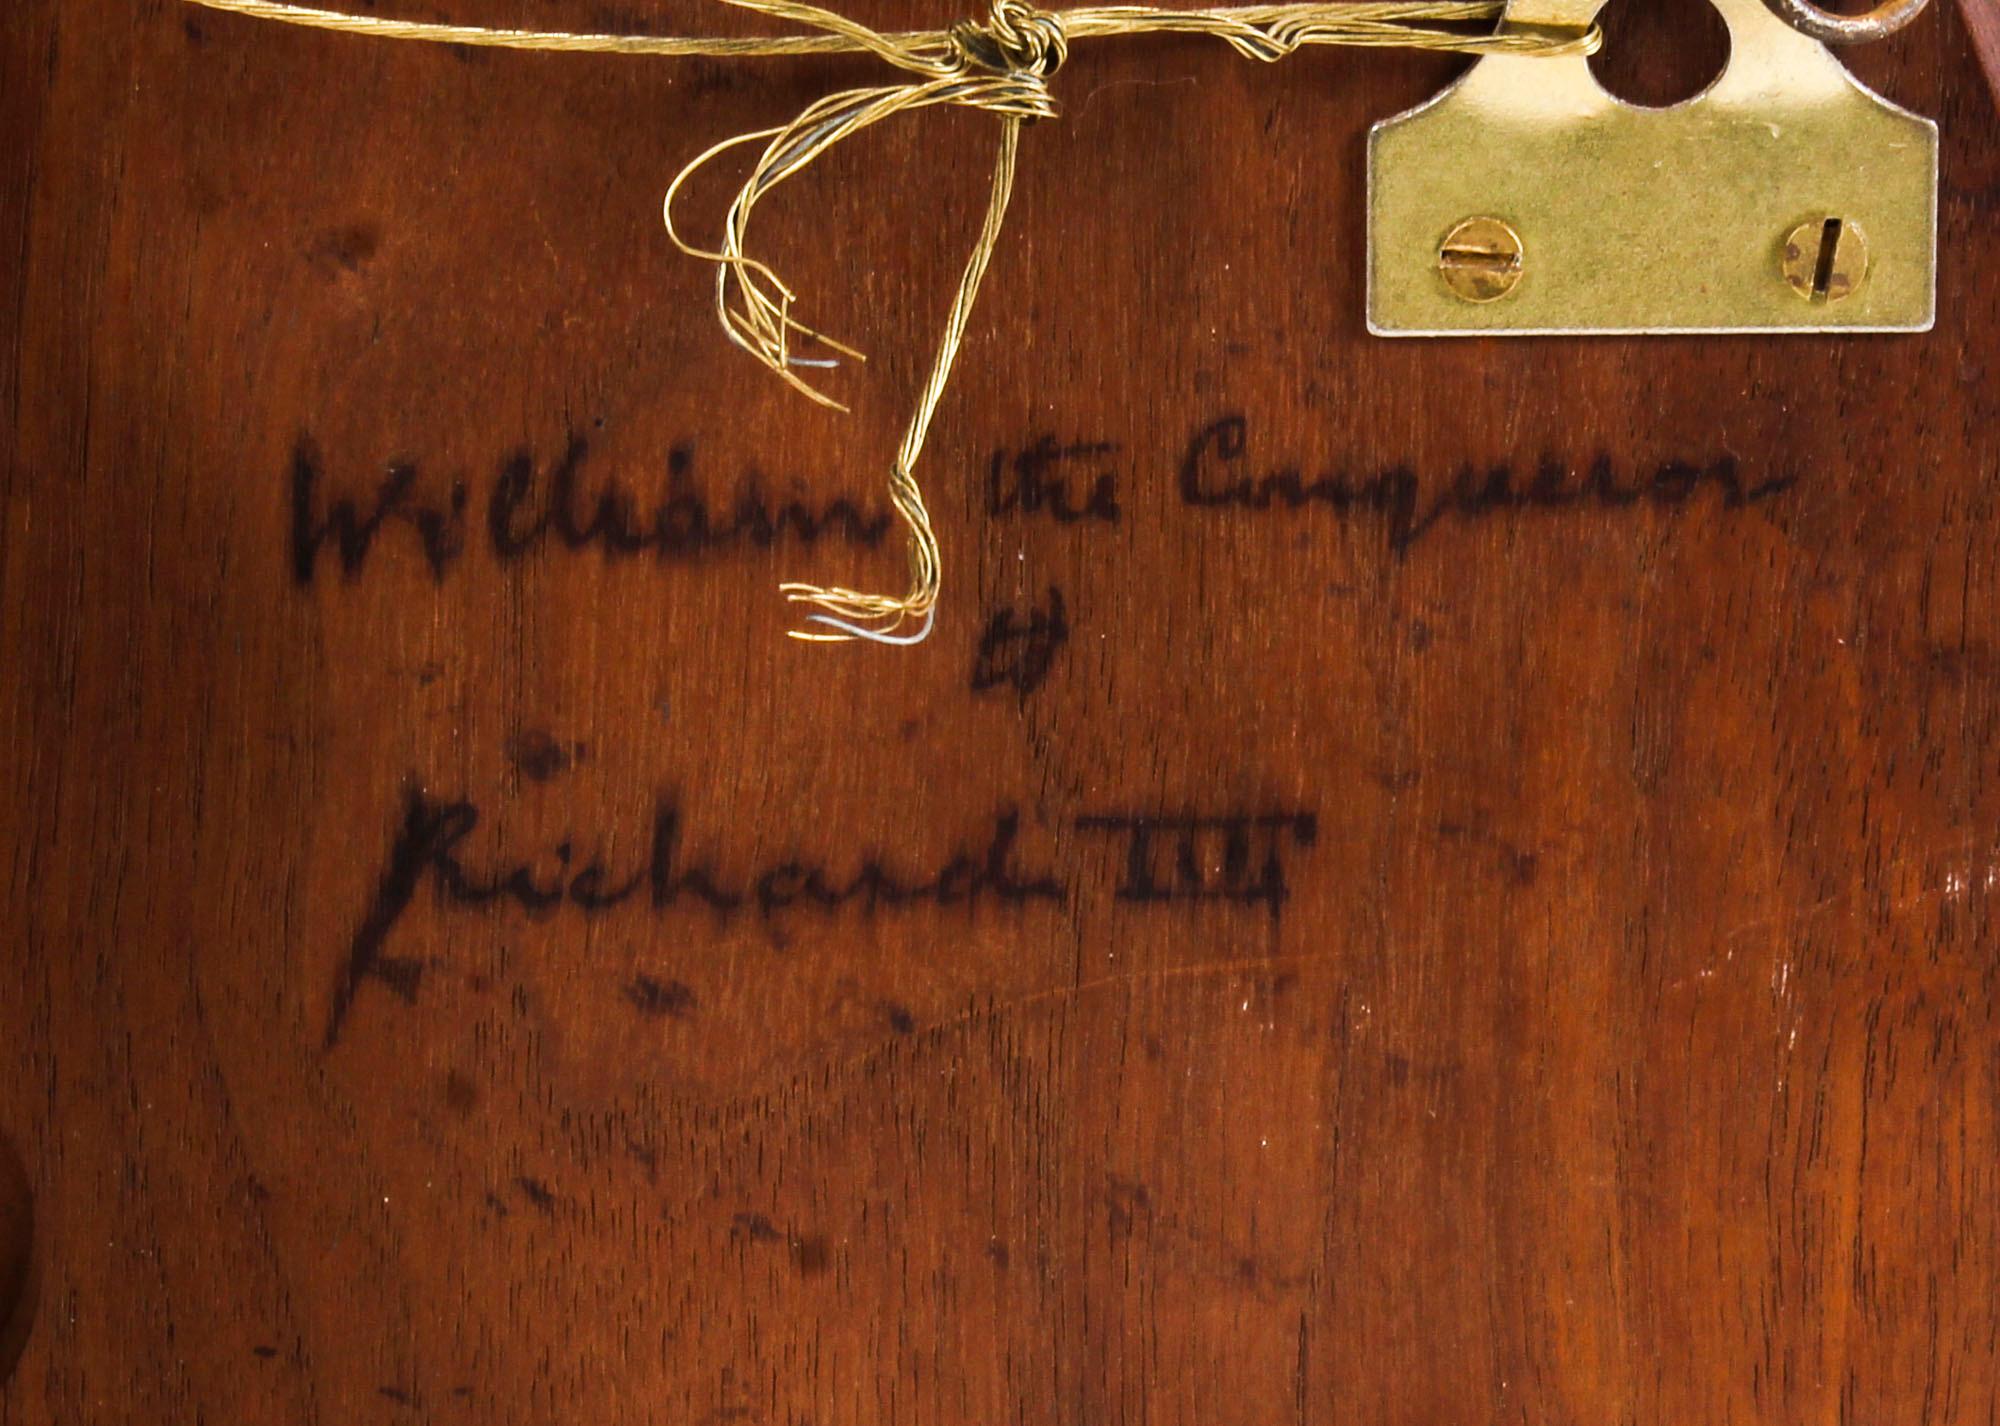 William the Conqueror
to
Richard III